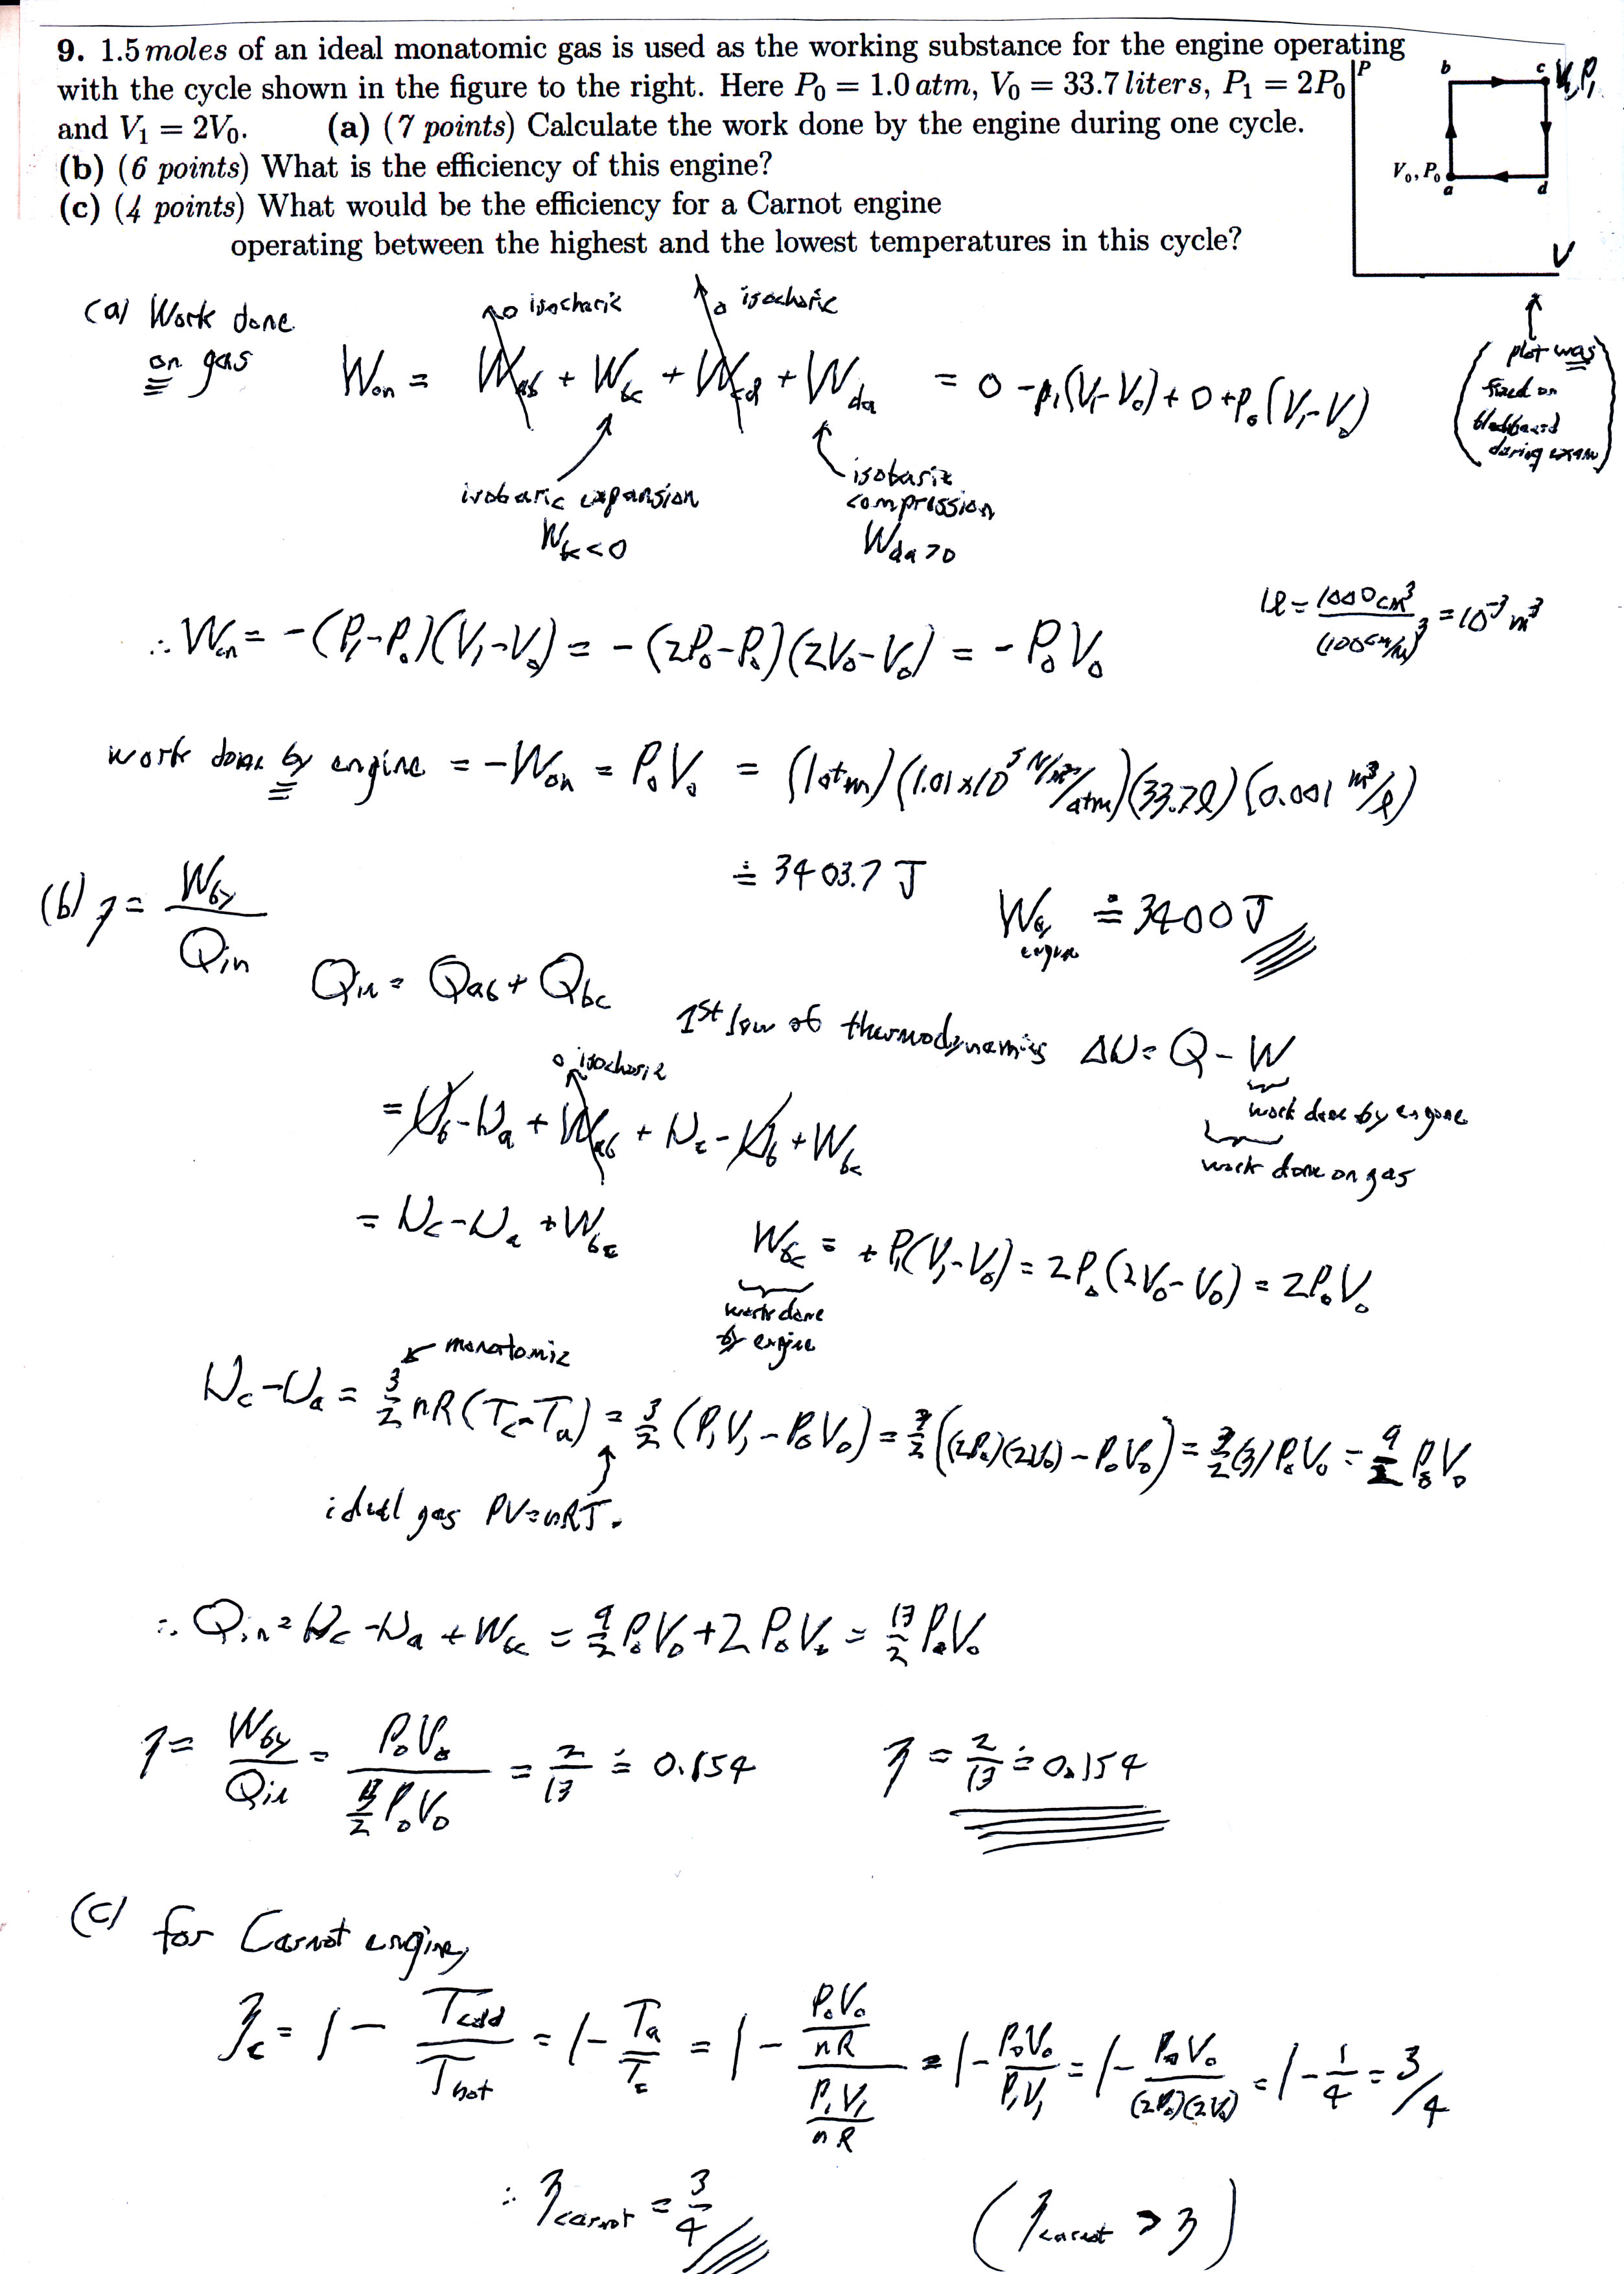 9. 1.5 moles of an ideal monatomic gas is used as the working substance for the engine operating
with the cycle shown in the figure to the right. Here P₀ = 1.0 atm, V₀ = 33.7 liters, P₁ = 2P₀
and V₁ = 2V₀. (a) (7 points) Calculate the work done by the engine during one cycle.
(b) (6 points) What is the efficiency of this engine?
(c) (4 points) What would be the efficiency for a Carnot engine
operating between the highest and the lowest temperatures in this cycle?
P b c V₁,P₁
V₀, P₀ a d
V
(plot was
fixed on
blackboard
during exam)
(a) Work done
on gas
0 isochoric 0 isochoric
W_on = W_ab + W_bc + W_cd + W_da = 0 - P₁(V₁-V₀) + 0 + P₀(V₁-V₀)
isobaric expansion
W_bc < 0
isobaric
compression
W_da > 0
1ℓ = 1000 cm³/(100 cm/m)³ = 10⁻³ m³
∴ W_on = -(P₁-P₀)(V₁-V₀) = -(2P₀-P₀)(2V₀-V₀) = -P₀V₀
work done by engine = -W_on = P₀V₀ = (1 atm)(1.01×10⁵ N/m²/atm)(33.7ℓ)(0.001 m³/ℓ)
≐ 3403.7 J
W_by engine ≐ 3400 J
(b) η = W_by/Q_in
Q_in = Q_ab + Q_bc
1st law of thermodynamics ΔU = Q - W
work done by engine
work done on gas
0 isochoric
= U_b - U_a + W_ab + U_c - U_b + W_bc
= U_c - U_a + W_bc
W_bc = + P₁(V₁-V₀) = 2P₀(2V₀-V₀) = 2P₀V₀
work done
by engine
monatomic
U_c - U_a = 3/2 nR(T_c-T_a) = 3/2 (P₁V₁ - P₀V₀) = 3/2 ((2P₀)(2V₀) - P₀V₀) = 3/2 (3) P₀V₀ = 9/2 P₀V₀
ideal gas PV = nRT.
∴ Q_in = U_c - U_a + W_bc = 9/2 P₀V₀ + 2 P₀V₀ = 13/2 P₀V₀
η = W_by/Q_in = P₀V₀/(13/2 P₀V₀) = 2/13 ≐ 0.154
η = 2/13 ≐ 0.154
(c) for Carnot engine,
η_c = 1 - T_cold/T_hot = 1 - T_a/T_c = 1 - (P₀V₀/nR)/(P₁V₁/nR) = 1 - P₀V₀/P₁V₁ = 1 - P₀V₀/(2P₀)(2V₀) = 1 - 1/4 = 3/4
∴ η_carnot = 3/4
(η_carnot > η)